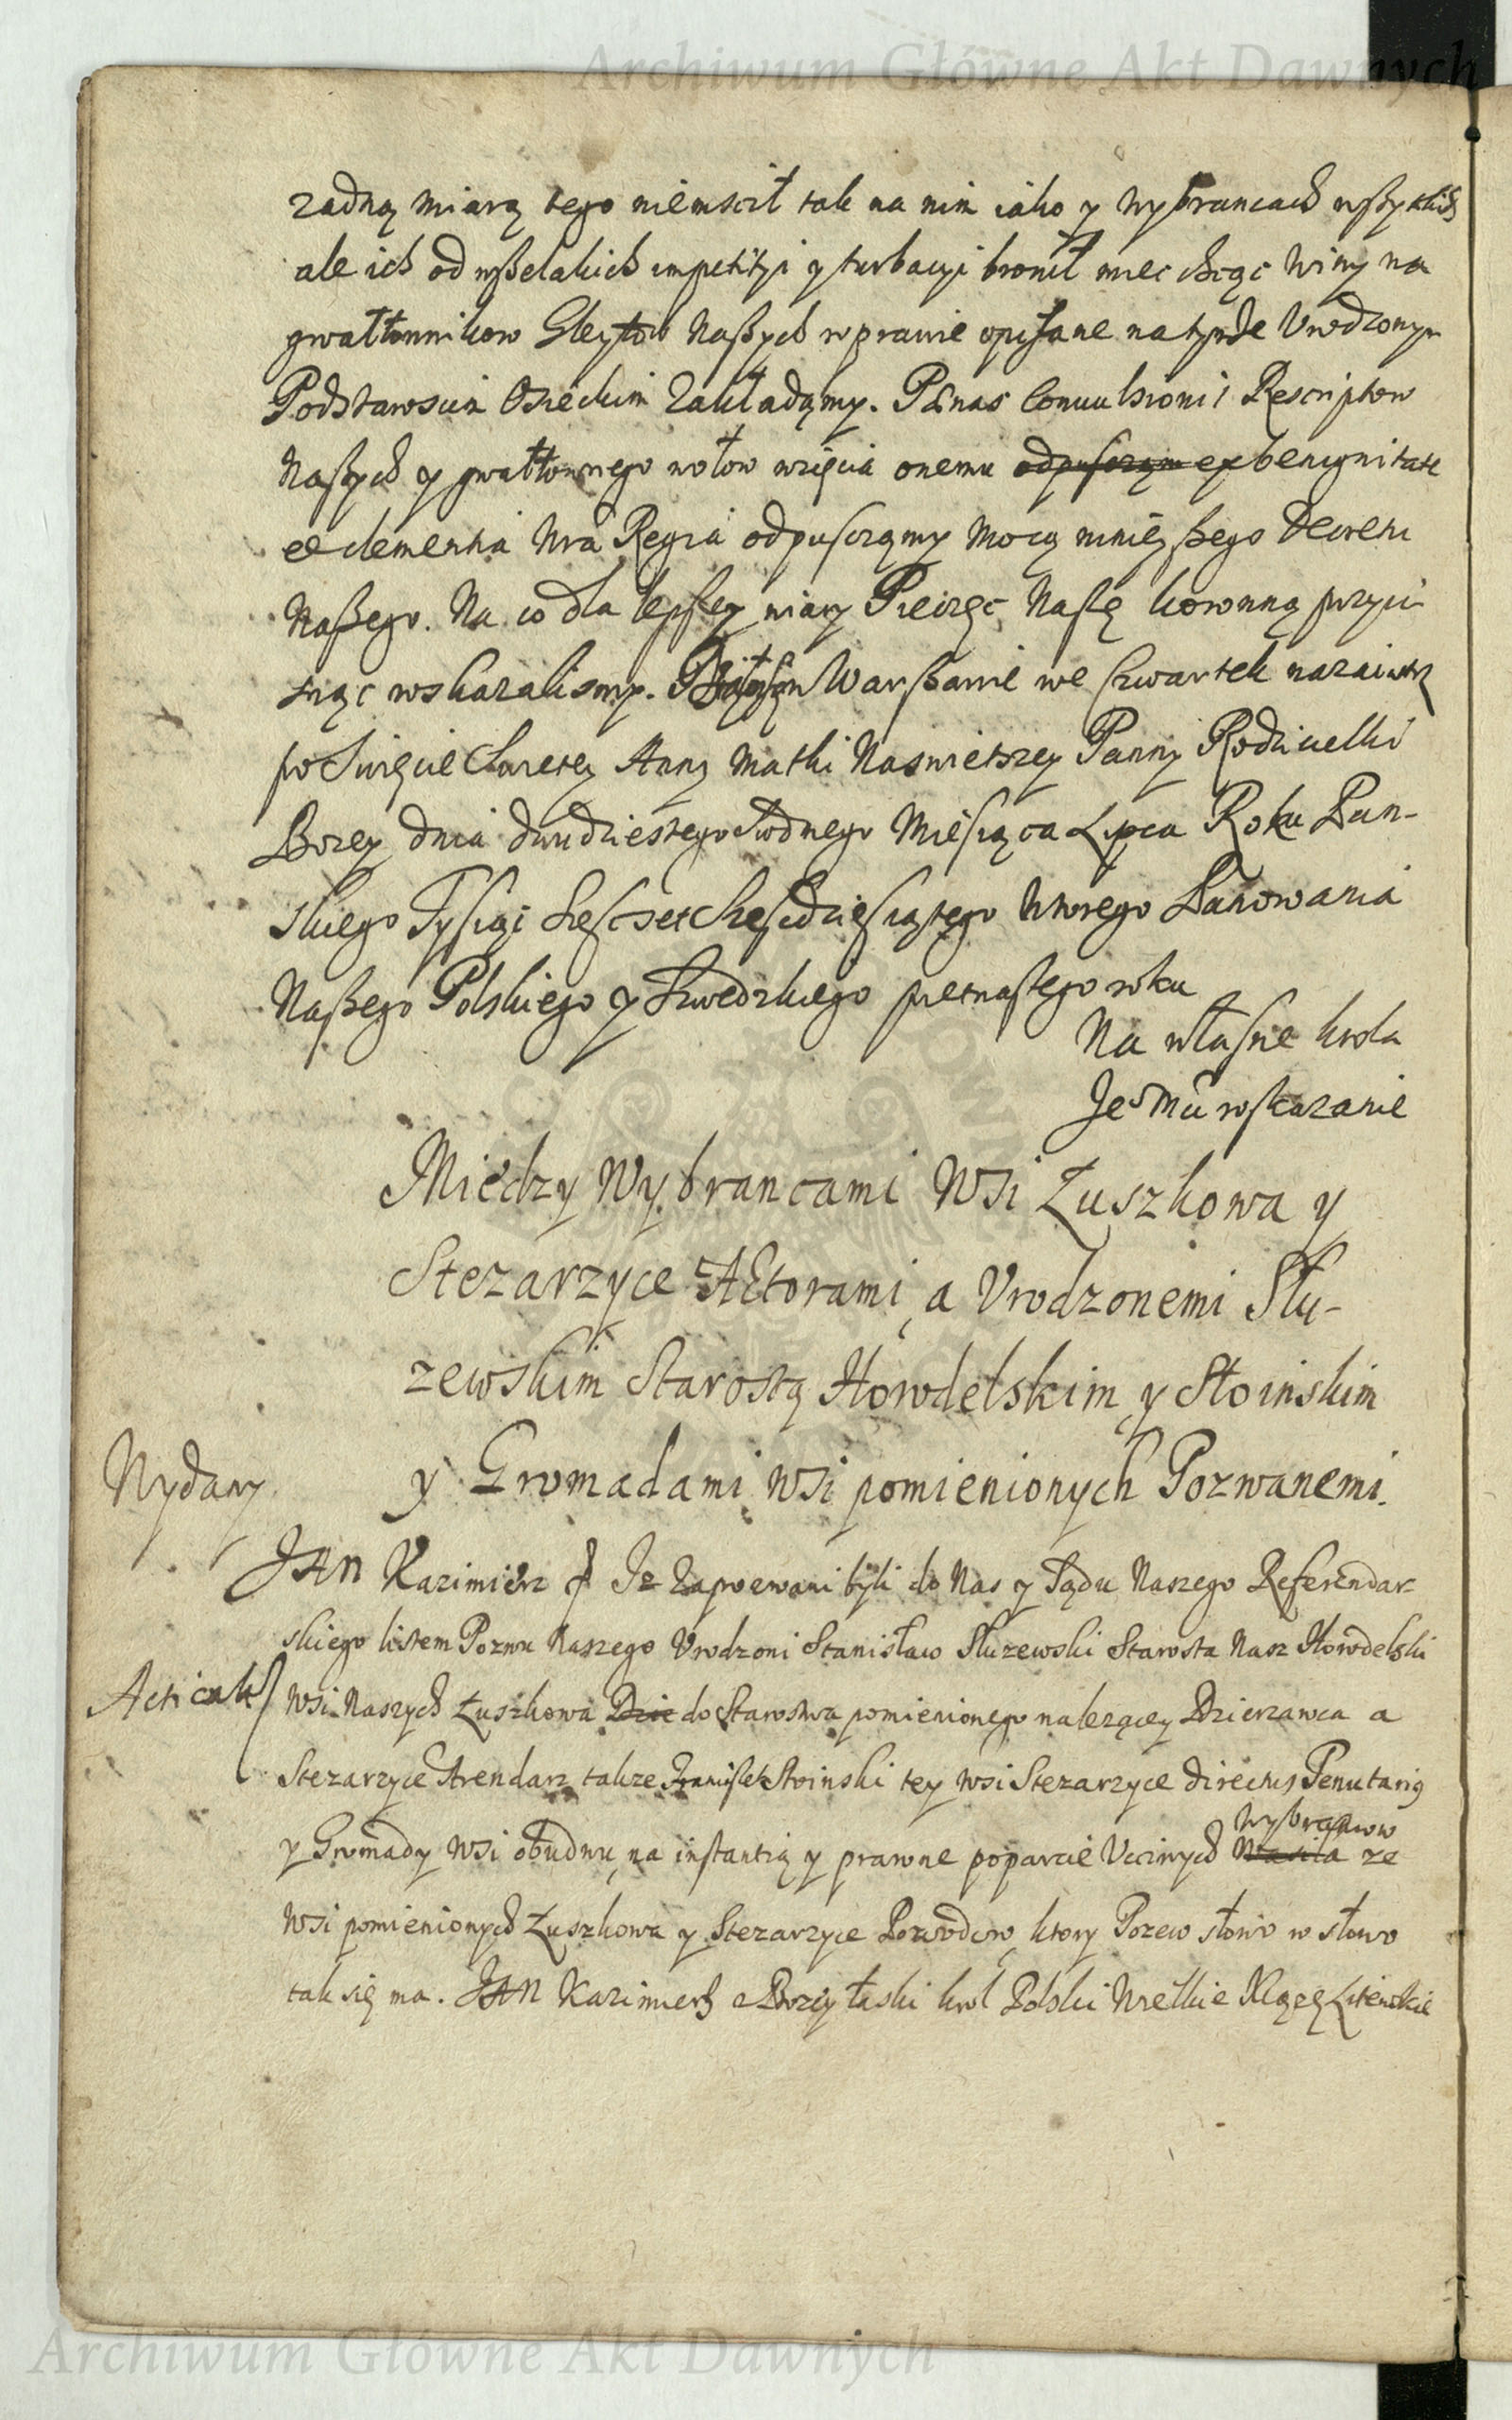 Archiwum Główne Akt Dawnych
zadną miarą tego niemscił tak na nim iako y Wybrancach wszytkich
ale ich od wszelakich impetitÿi y turbacyi bronił miec chcąc winy na
gwałtownikow Gleytow Naszych w prawie opisane na tymże Vrodzonym
Podstarosciem Osieckim zakładąmy. Pænas Convulsionis Rescriptow
Naszych y gwałtownego wołow wzięcia onemu odpuscząm ex benignitate
et clementia Nra Regia odpuscząmy mocą ninieyszego Decretu
Naszego. Na co dla lepszey wiary Pieczęc Naszę koronną przyci-
snąc wskazalismy. Działo się w Warszawie we Czwartek nazaiutrz
po Swięcie Swietey Anny Matki Naswietszey Panny Rodzicielki
Bozey dnia dwudziestego Siodmego Miesiąca Lipca Roku Pan-
skiego Tysiąc Szescset Szescdziesiątego wtorego Panowania
Naszego Polskiego y Szwedzkiego pietnastego roku
Na własne krola
Je° Mci wskazanie
Między Wybrancami Wsi Łuszkowa y
Stezarzyce Aktorami, a Vrodzonemi Słu-
zewskim Starostą Horodelskim, y Stoinskim
y Gromadami Wsi pomienionych Pozwanemi.
Wydany
JAN Kazimierz Iz Zapozwani byli do Nas y Sądu Naszego Referendar-
skiego listem Pozwu Naszego Vrodzoni Stanisław Słuzewski Starosta Nasz Horodelski
Acticat
Wsi Naszych Łuszkowa Dzie do Starostwa pomienionego nalezącey Dzierzawca a
Stezarzyce Arendarz takze Franciszek Stoinski tey Wsi Stezarzyce directus Tenutarius
Wybrancow
y Gromady Wsi obudwu, na instantią y prawne poparcie Vcciwych Wasila ze
Wsi pomienionych Łuszkowa y Stezarzyce Powodow, ktory Pozew słowo w słowo
tak się ma. JAN Kazimierz z Bozey łaski krol Polski Wielkie Xiążę Litewskie
Archiwum Główne Akt Dawnych